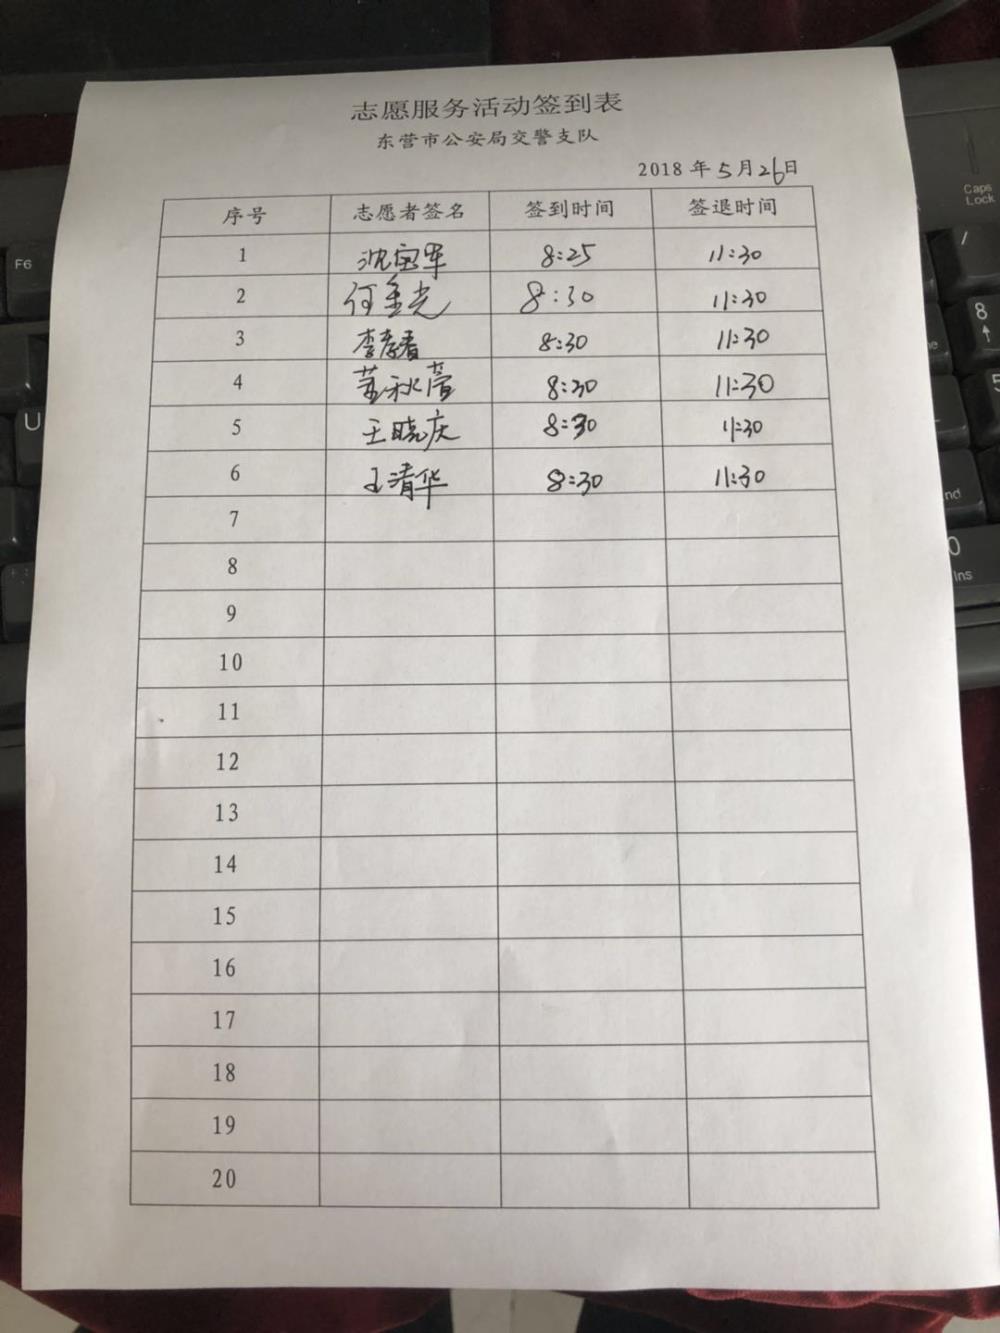 志愿服务活动签到表
东营市公安局交警支队
2018 年 5 月 26 日
序号 志愿者签名 签到时间 签退时间
1 沈宝军 8:25 11:30
2 何金光 8:30 11:30
3 李春香 8:30 11:30
4 秋萱 8:30 11:30
5 王晓庆 8:30 11:30
6 王清华 8:30 11:30
7
8
9
10
11
12
13
14
15
16
17
18
19
20
F6
U
Caps Lock
/
8
5
0
Ins